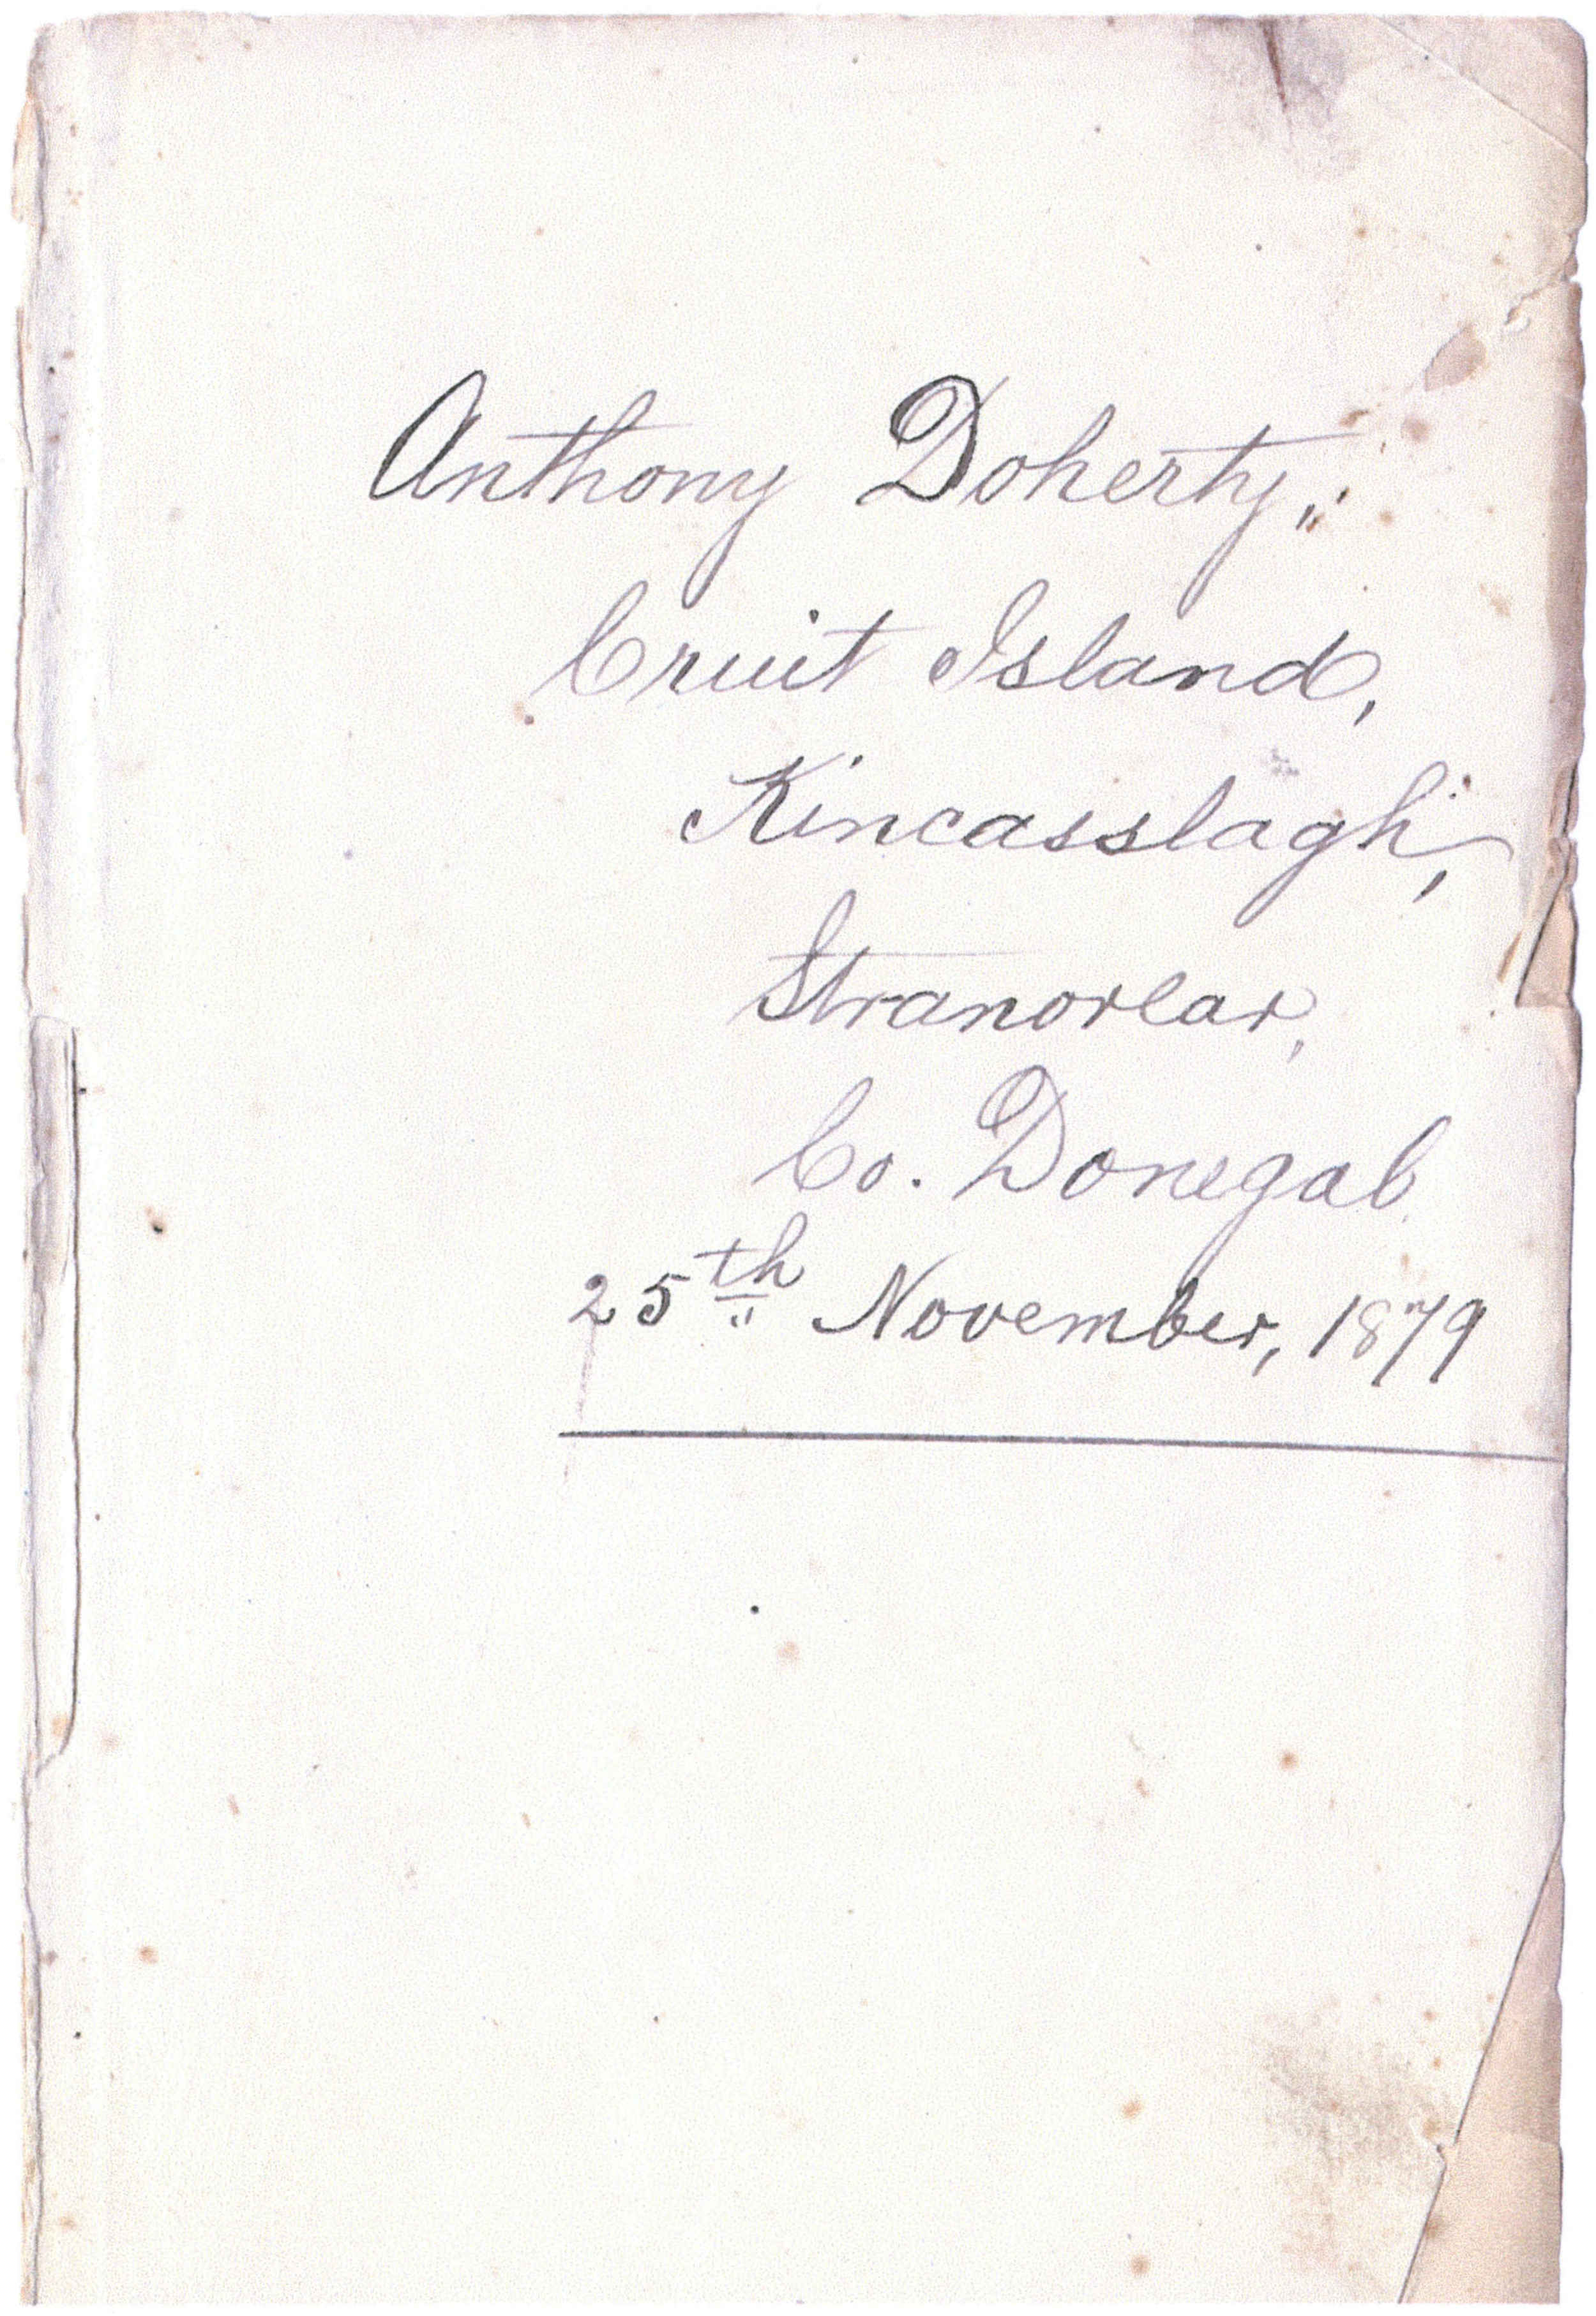 Anthony Doherty,,
Cruit Island,
Kincasslagh,
Stranorlar,
Co. Donegal.
25th November, 1879